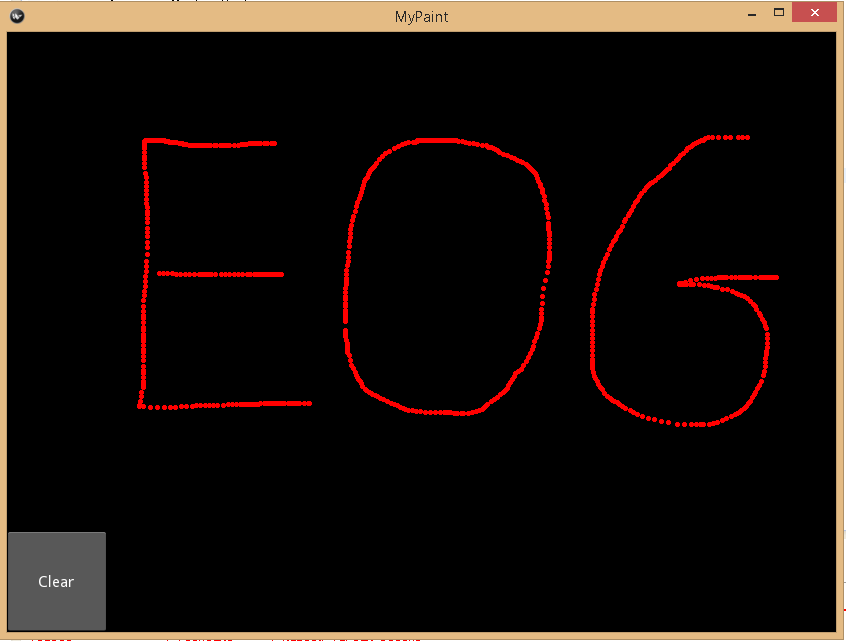 MyPaint
EOG
Clear